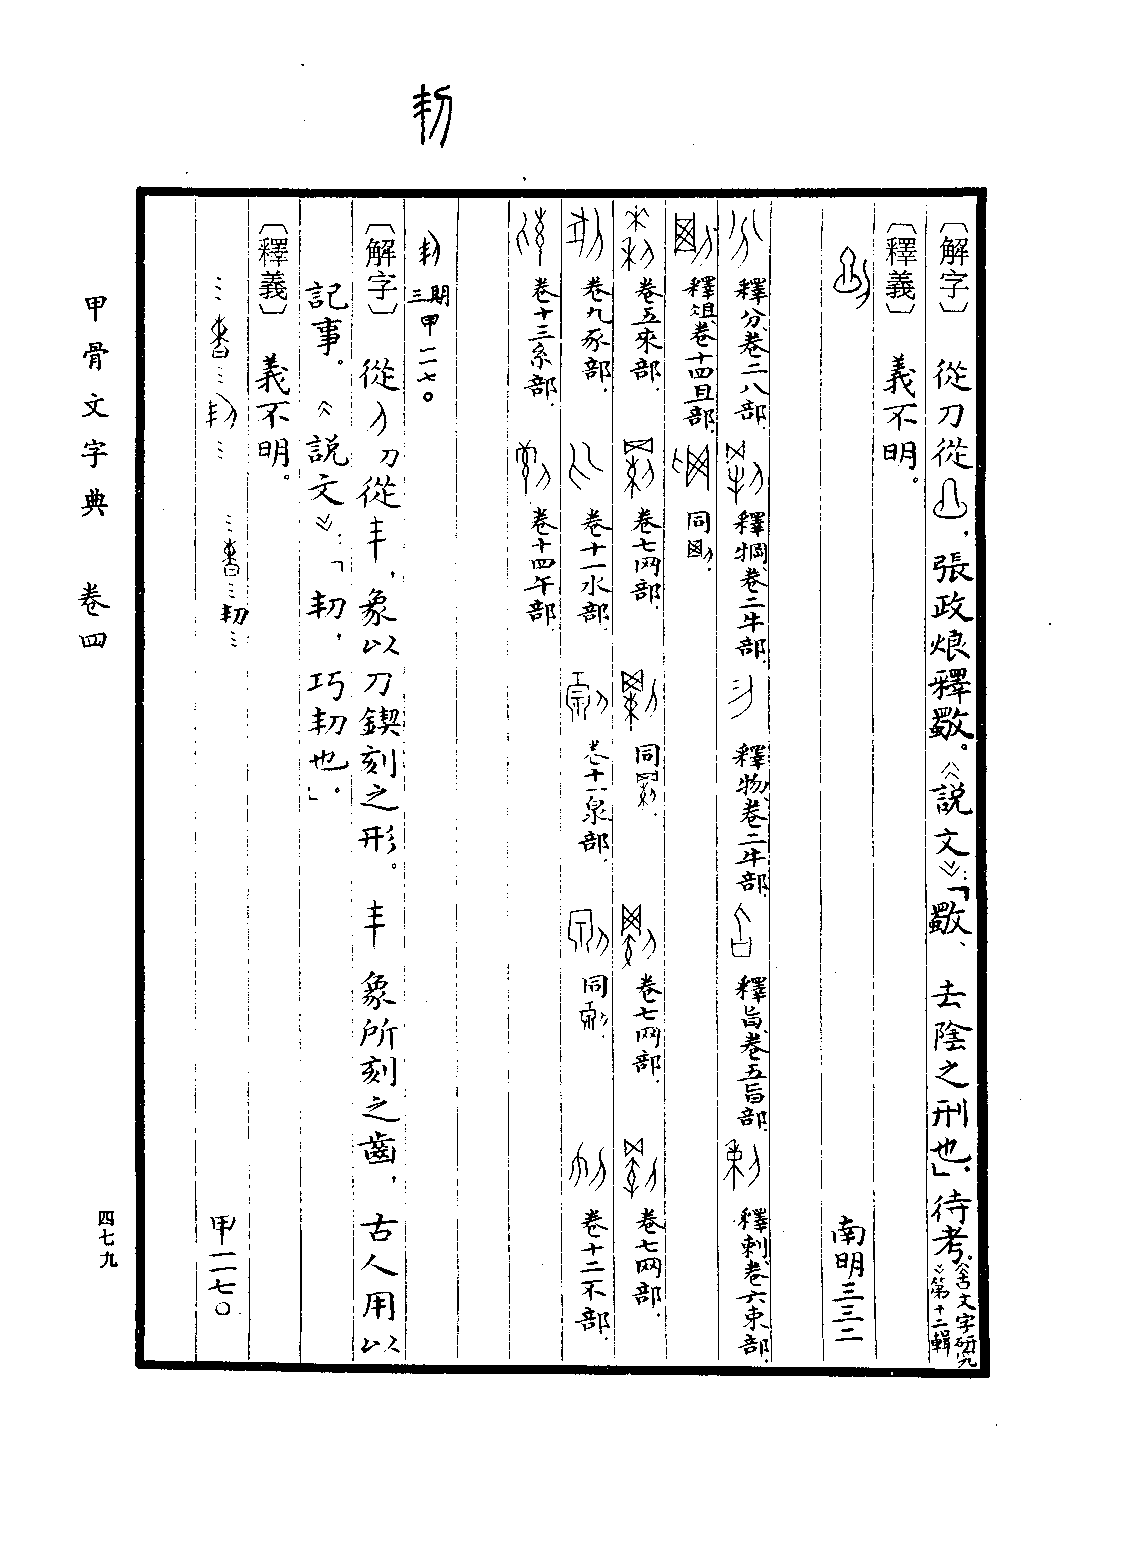 㓞
〔解字〕 從刀從，張政烺釋斀。《說文》：「斀、去陰之刑也」。待考。《古文字研究》第十二輯
〔釋義〕 義不明。
南明三三二
釋分、卷二八部. 釋犅、卷二牛部. 釋物、卷二牛部. 釋旨、卷五旨部. 釋剌、卷六束部.
釋俎、卷十四且部. 同
卷五來部. 卷七网部. 同 卷七网部. 卷七网部.
卷九豕部. 卷十一水部. 卷十一泉部. 同 卷十二不部.
卷十三糸部. 卷十四午部.
三期 甲一一七〇
〔解字〕 從刀從丰，象以刀鍥刻之形。丰象所刻之齒，古人用以
記事。《說文》：「㓞，巧㓞也」。
〔釋義〕 義不明。
甲一一七〇
…㓞…
甲骨文字典 卷四
四七九